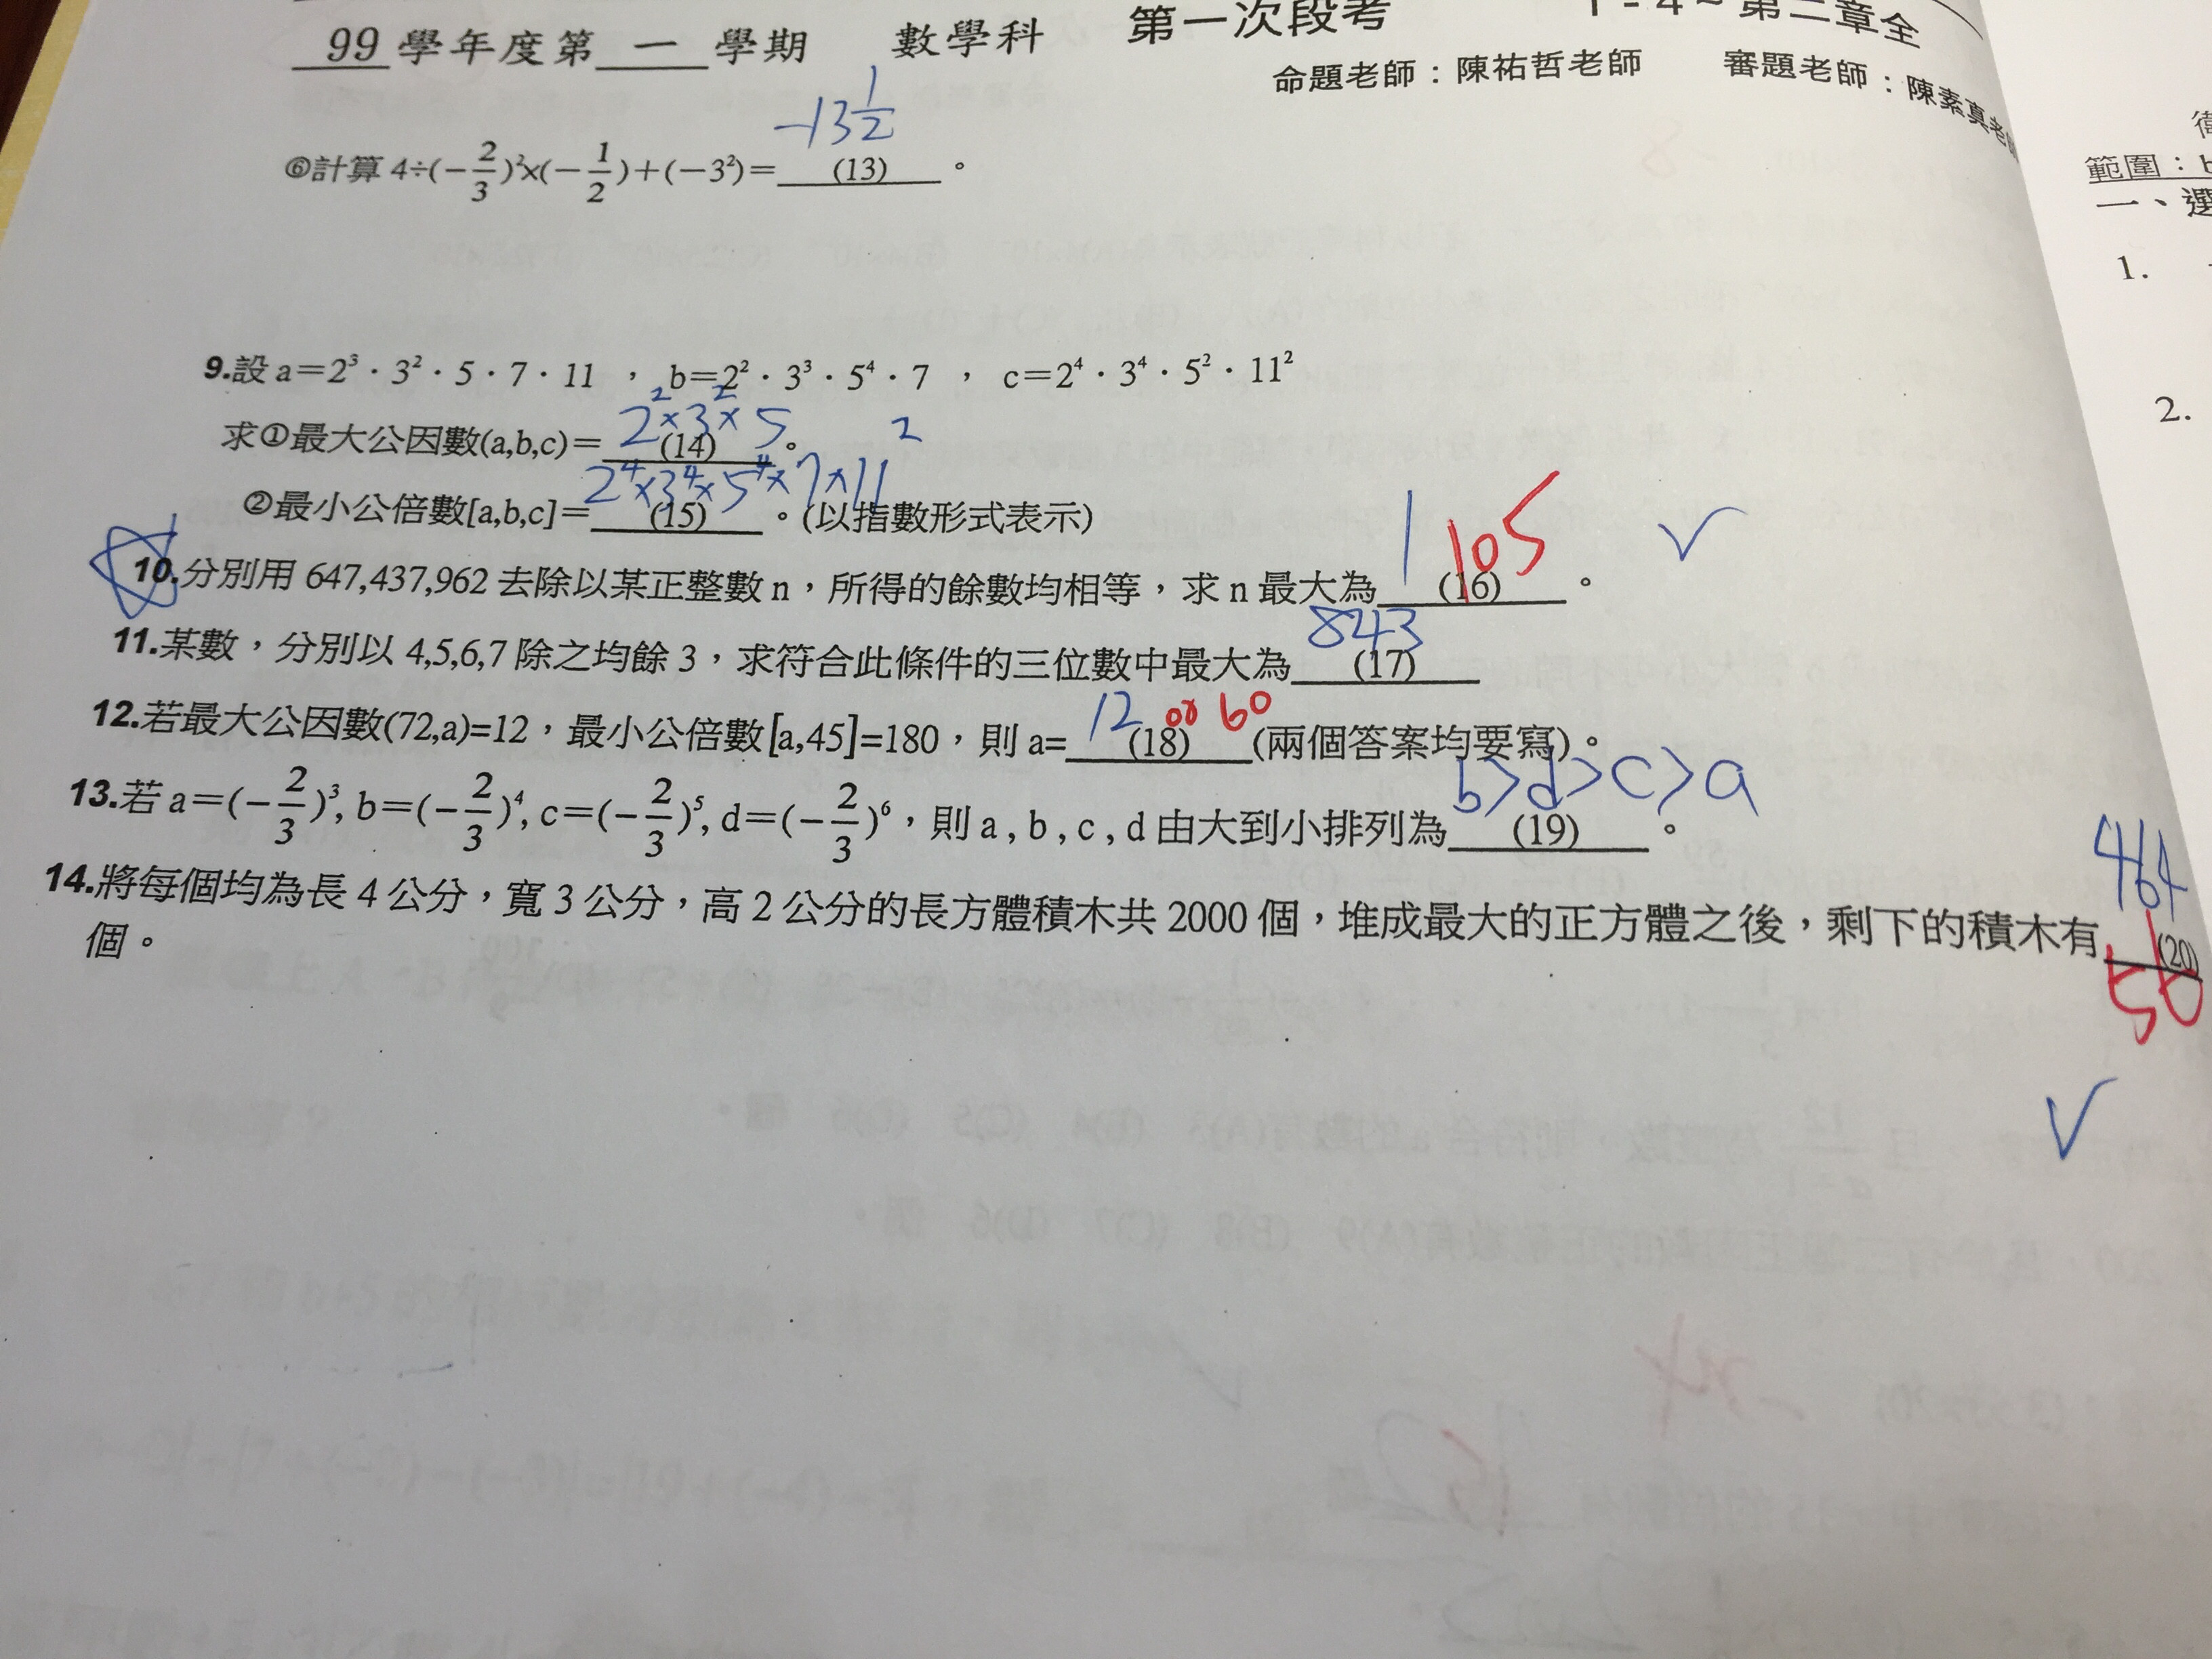 99 學年度第 一 學期 數學科 第一次段考 1-4~第二章全
命題老師：陳祐哲老師 審題老師：陳素真老
-13 1/2
⑥計算 4÷(-2/3)²×(-1/2)+(-3²)= (13) 。
9.設 a=2³·3²·5·7·11 ，b=2²·3³·5⁴·7 ，c=2⁴·3⁴·5²·11²
2²×3²×5
求①最大公因數(a,b,c)= (14) 。
2⁴×3⁴×5⁴×7×11²
②最小公倍數[a,b,c]= (15) 。(以指數形式表示)
1 105
10.分別用 647,437,962 去除以某正整數 n，所得的餘數均相等，求 n 最大為 (16) 。
843
11.某數，分別以 4,5,6,7 除之均餘 3，求符合此條件的三位數中最大為 (17)
12 or 60
12.若最大公因數(72,a)=12，最小公倍數[a,45]=180，則 a= (18) (兩個答案均要寫)。
b>d>c>a
13.若 a=(-2/3)³, b=(-2/3)⁴, c=(-2/3)⁵, d=(-2/3)⁶，則 a , b , c , d 由大到小排列為 (19) 。
464
14.將每個均為長 4 公分，寬 3 公分，高 2 公分的長方體積木共 2000 個，堆成最大的正方體之後，剩下的積木有 (20)
個。
範圍：
一、選
1.
2.